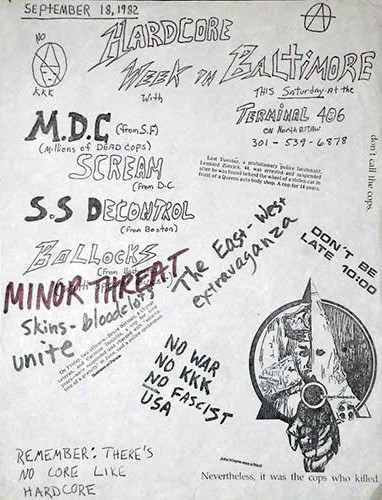 SEPTEMBER 18, 1982
HARDCORE
WEEK IN BALTIMORE
With
THIS Saturday At the
NO
KKK
TERMINAL 406
ON North EUTAW
301-539-6878
don't call the cops.
M.D.C (from S.F)
(Millions of DEAD COPS)
SCREAM
(From D.C.
S.S DECONTROL
(from Boston)
Last Tuesday, a probationary police lieutenant,
Leonard Zorrick, 44, was arrested and suspended
after he was found behind the wheel of a stolen car in
front of a Queens auto body shop. A cop for 14 years.
BOLLOCKS
(From
MINOR THREAT
The East-West
extravaganza
DON'T BE
LATE 10:00
Skins-bloodclots
unite
NO WAR
NO KKK
NO FASCIST
USA
REMEMBER: THERE'S
NO CORE LIKE
HARDCORE
John Wayne was a Nazi
Nevertheless, it was the cops who killed